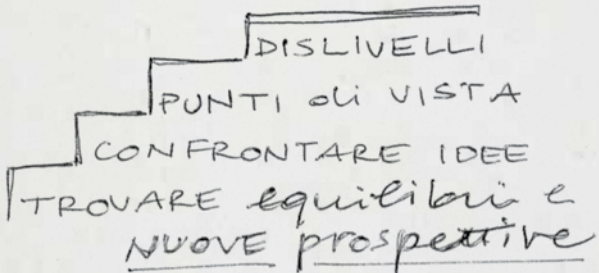 DISLIVELLI
PUNTI di VISTA
CONFRONTARE IDEE
TROVARE equilibri e
NUOVE prospettive